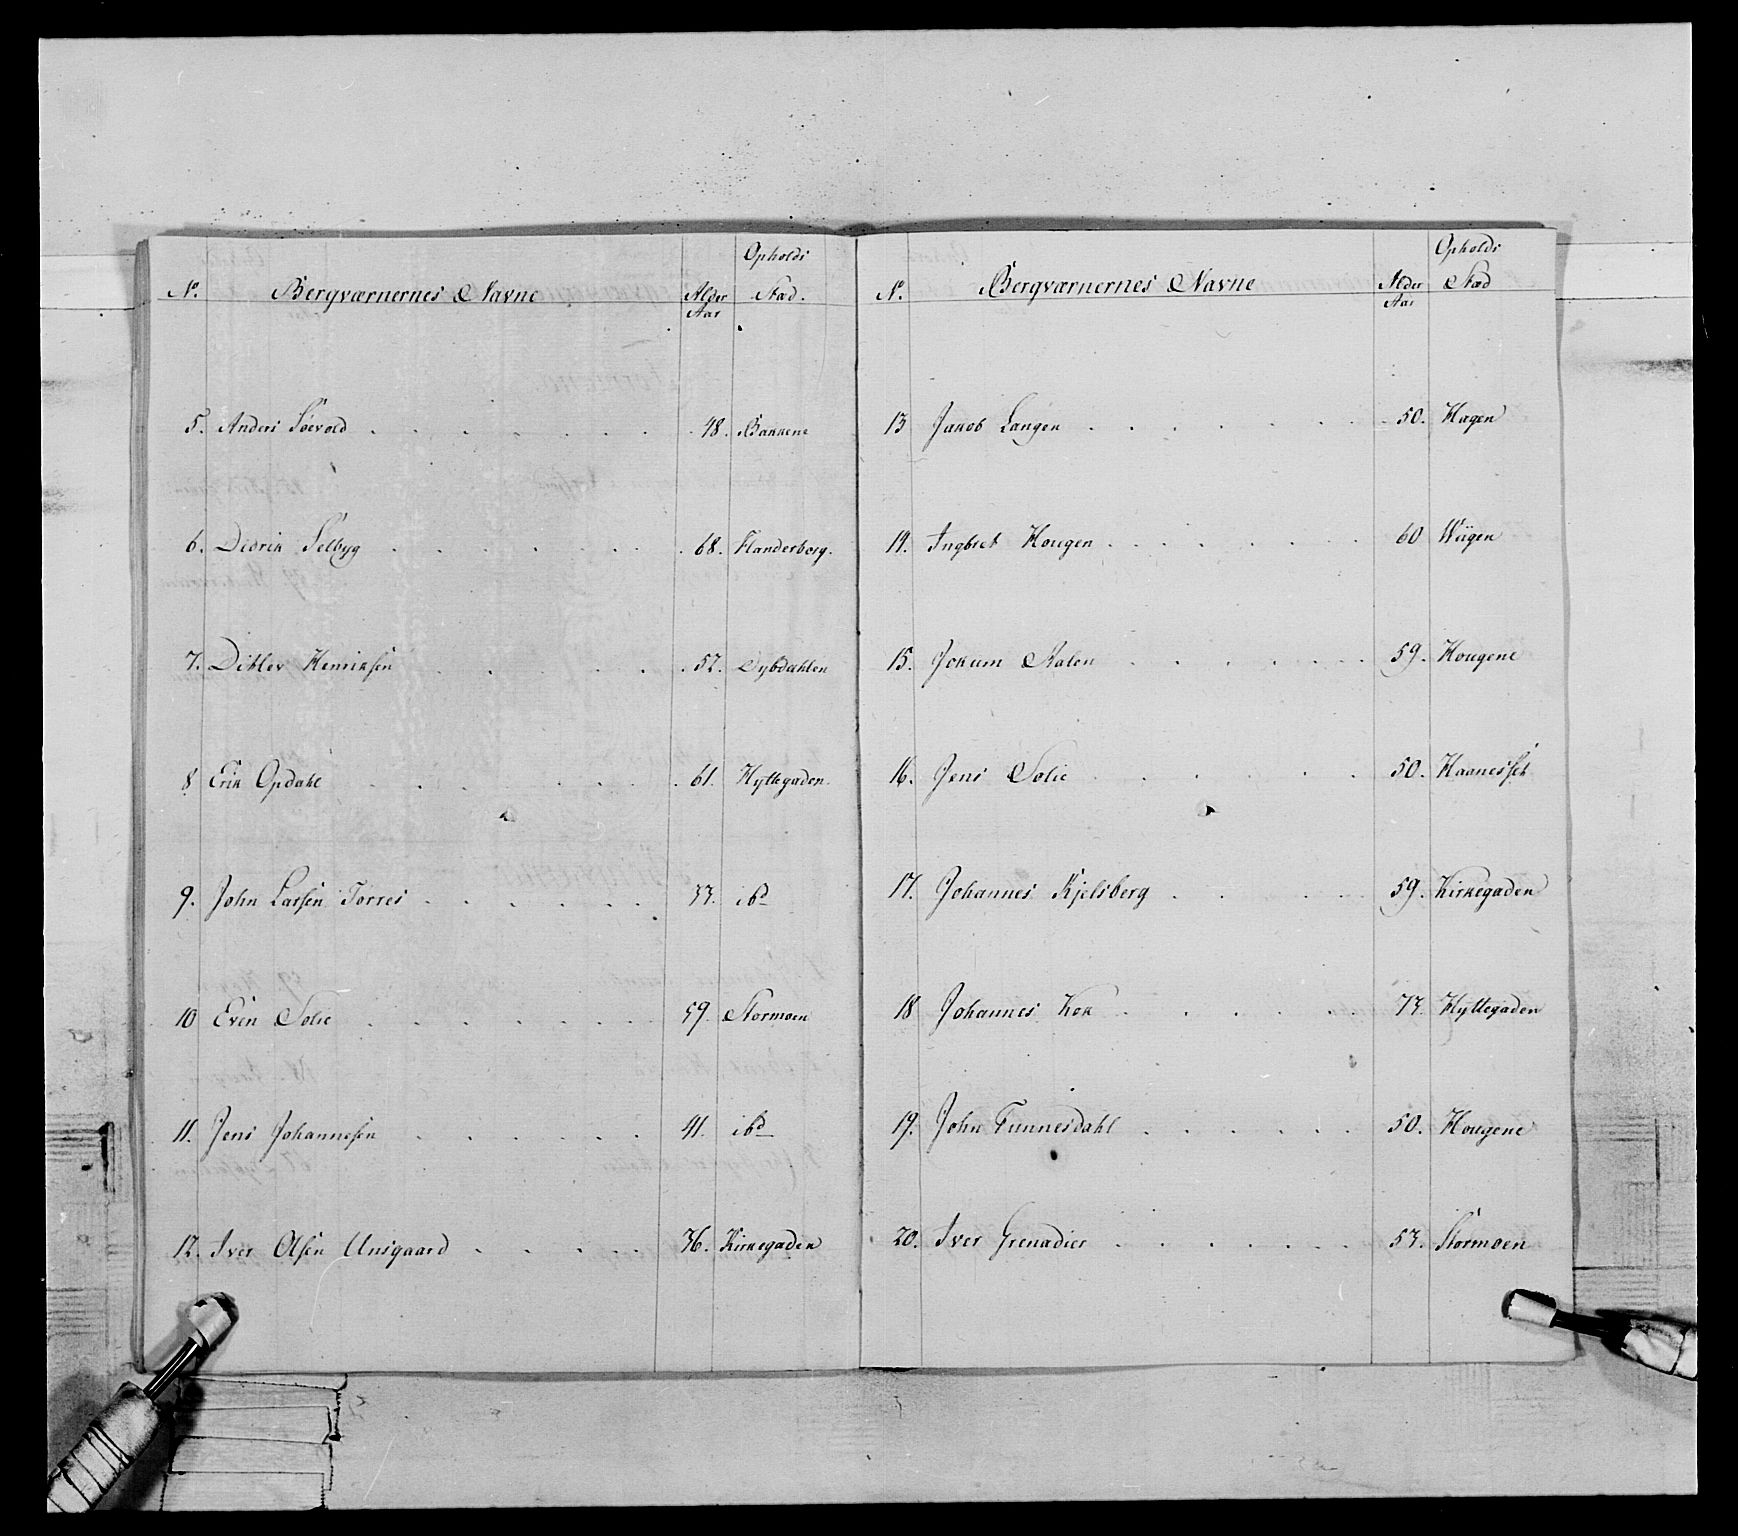 Opholds
No. Bergværnernes Navne Alder Stæd.
Aar
5. Anders Söevold . . . . . . . 48. Bakkene
6. Didrik Selbyg . . . . . . . 68. Flanderborg.
7. Ditlev Henriksen . . . . . 52. Dybdahlen
8 Erik Opdahl . . . . . . . 61. Hyttegaden
9. John Larsen Törres . . . . . . 33. ibd
10 Even Solie . . . . . . . 59. Stormoen
11. Jens Johannesen . . . . . . 41. ibd
12. Iver Olsen Unsgaard . . . . . 36. Kirkegaden
Opholds
No. Bergværnernes Navne Alder Stæd
Aar
13 Jakob Langen . . . . . . . 50. Hagen
14. Ingbret Hougen . . . . . . . 60 Wiigen
15. Jokum Aalen . . . . . . 59. Hougene
16. Jens Solie . . . . . . 50. Haanesset
17. Johannes Kjelsberg . . . . 59. Kirkegaden
18 Johannes Kok . . . . . 73. Hyttegaden
19. John Tunnesdahl . . . . . . 50. Hougene
20. Iver Grenadier . . . . . . 53. Stormoen